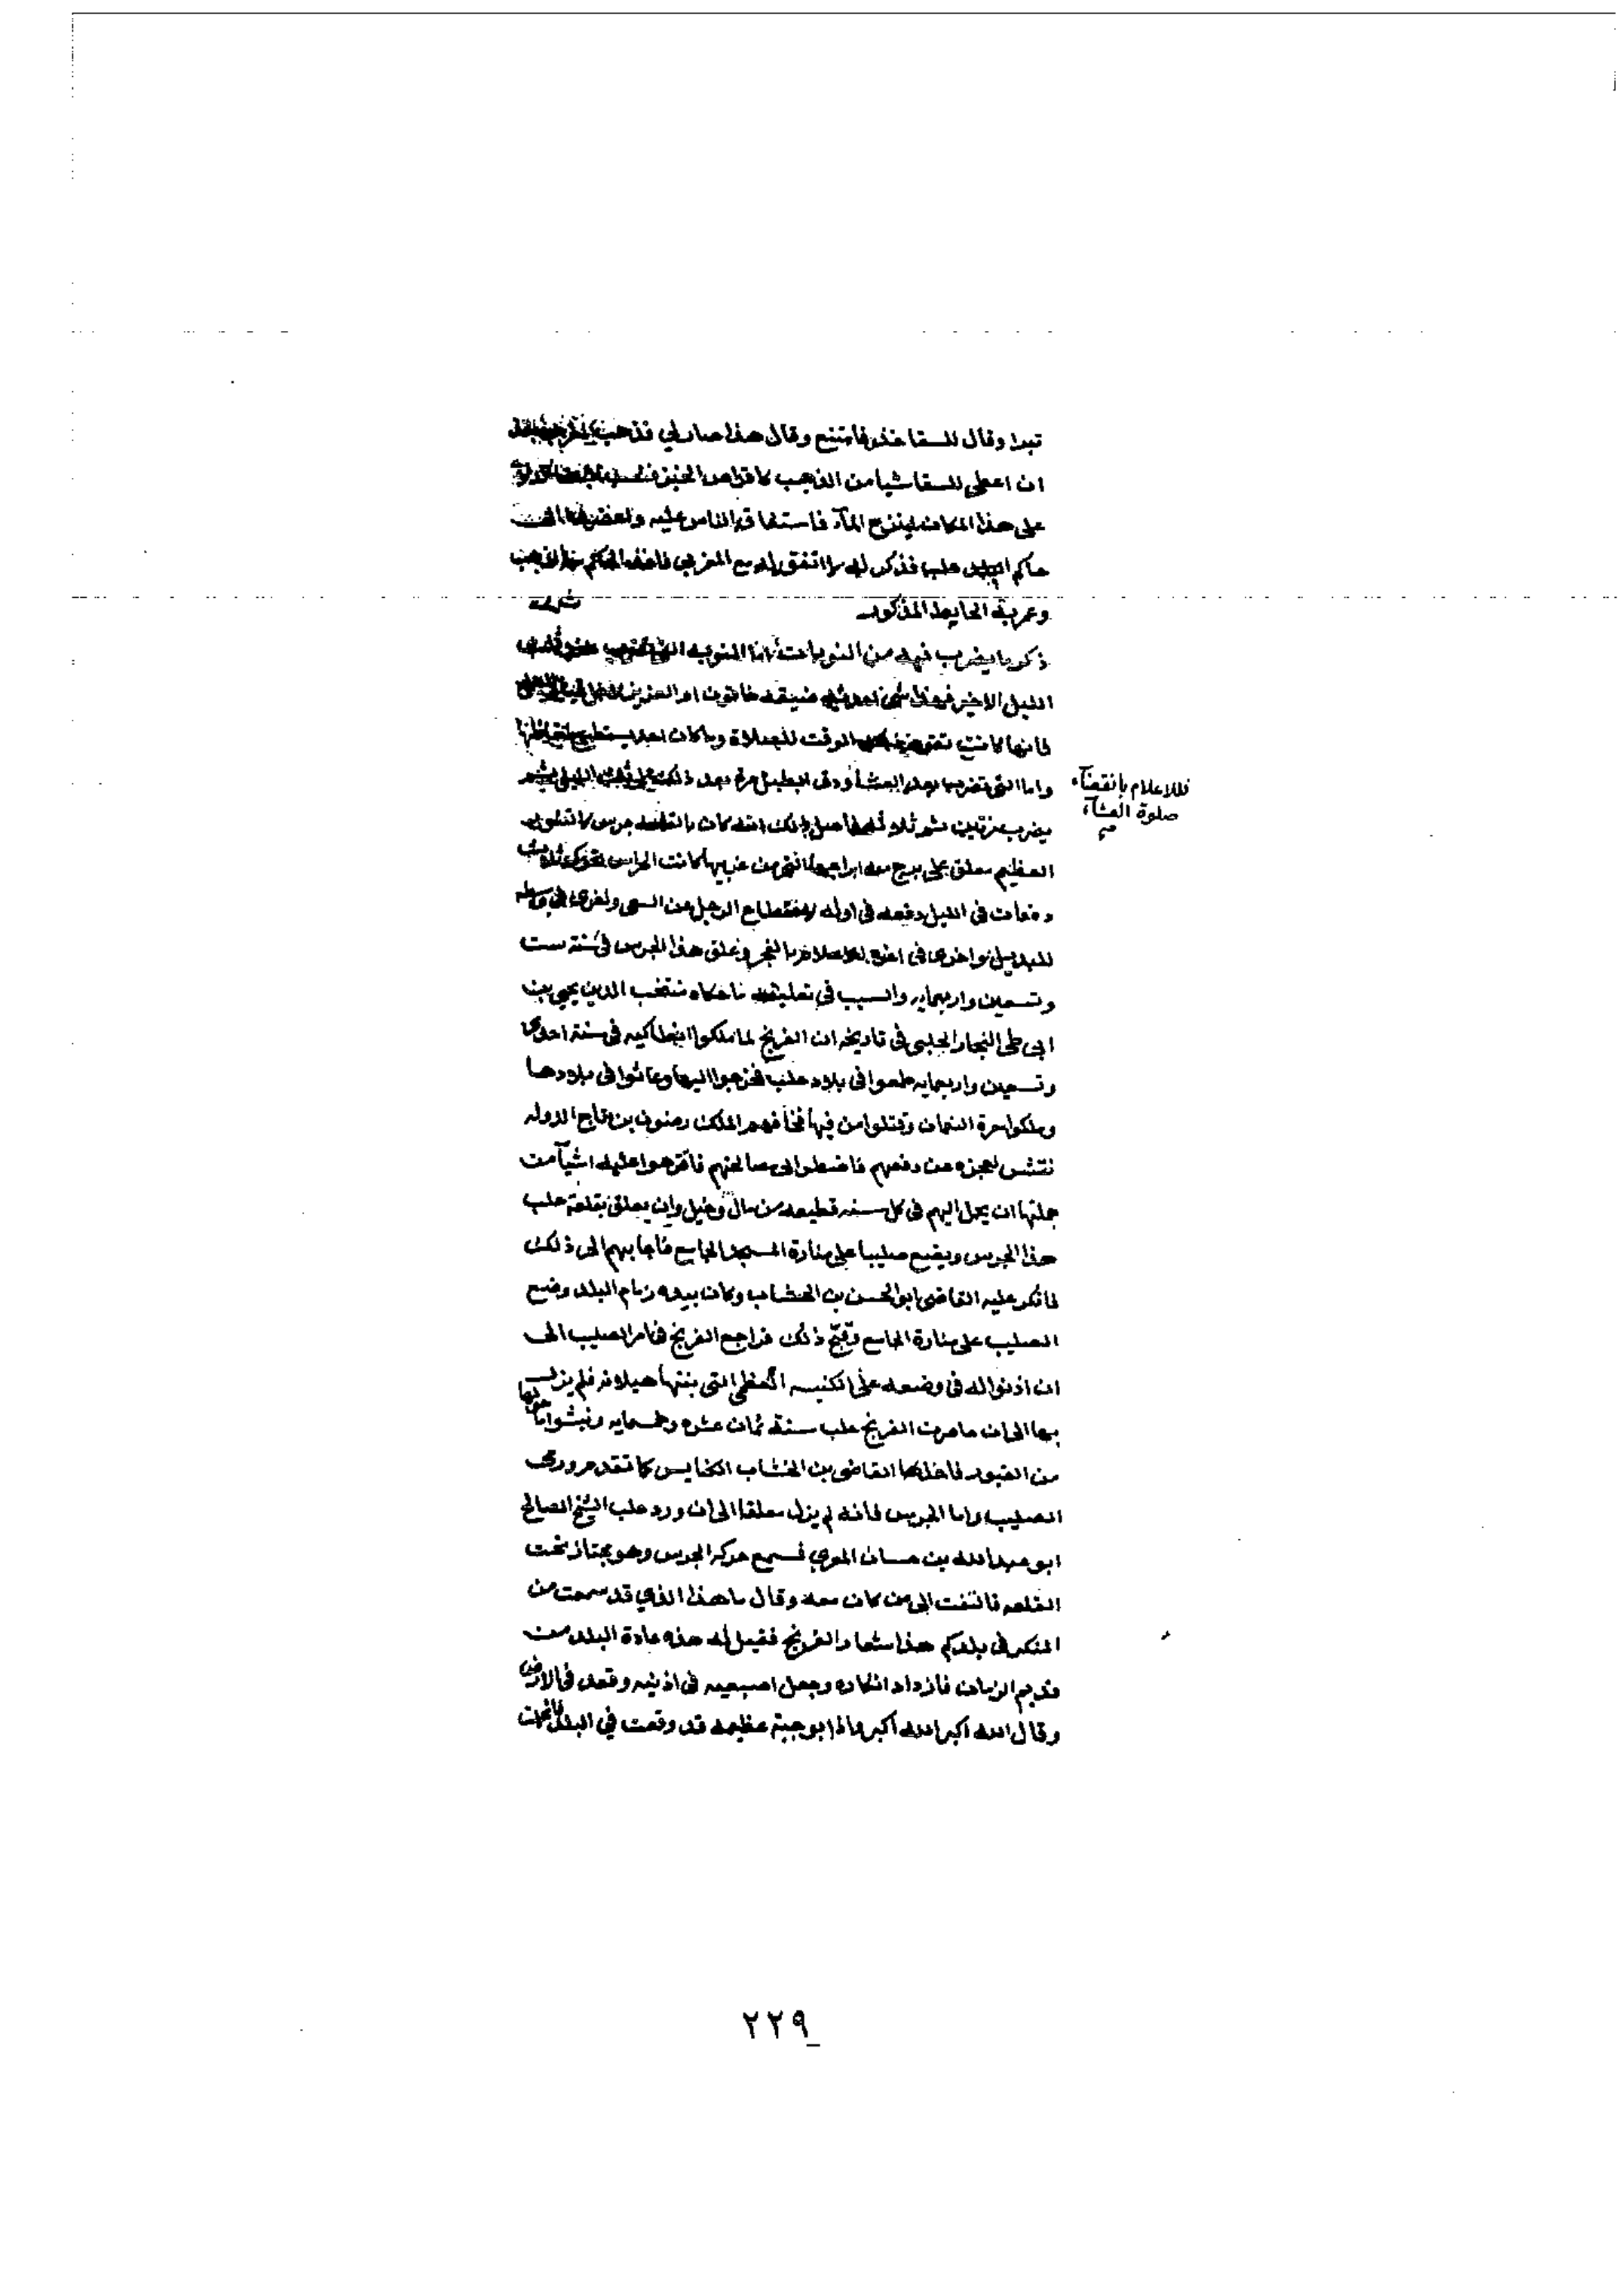 تبدا وقال للسقا خذ فامتنع وقال هذا صار لي فذهب
ان اعطى للسقا شيا من الذهب كاقراص الخبز
على هذا المكان لينزح المآء فاستفاق الناس عليه واحضر الى
حاكم حلب فذكر له ما اتفق له مع المغربي فاخذ الحاكم الذهب
وعمر به الحايط المذكور
ذكر ما يضرب فيها من النوبات أما النوبة التي تضرب
الليل الاخير فهذا شي احدثته ضيفه خاتون ام العزيز
فانها كانت تقوم الوقت للصلاة وما كان احد يستطيع
واما التي تضرب بعد العشا ودق الطبل مرة بعد ذلك الليل ثم
فللاعلام بانقضآء
صلوة العشآء
يضرب مرتين ثم ثلاثا فاصل ذلك انه كان بالقلعه جرس كالتنور
العظيم معلق على برج من ابراجها التي من غربيها كانت الحراس تحركه ثلاث
دفعات في الليل دفعه في اوله لانقطاع الرجل عن السعي واخرى في وسطه
للبديل واخرى في اخره للاعلام بالفجر وعلق هذا الجرس في سنة ست
وتسعين واربعمايه والسبب في تعليقه ما حكاه منتخب الدين يحيى بن
ابي طي النجار الحلبي في تاريخه ان الفرنج لما ملكوا انطاكيه في سنة احدى
وتسعين واربعمايه طمعوا في بلاد حلب فخرجوا اليها وعاثوا في بلادها
وملكوا معرة النعمان وقتلوا من فيها فخافهم الملك رضوان بن تاج الدوله
تتش لعجزه عن دفعهم فاضطر الى مصالحتهم فاقترحوا عليه اشيآ من
جملتها ان يحمل اليهم في كل سنه قطيعه من مال وخيل وان يعلق بقلعة حلب
هذا الجرس ويضع صليبا على منارة المسجد الجامع فاجابهم الى ذلك
فانكر عليه القاضي ابو الحسن بن الخشاب وكان بيده زمام البلد وضع
الصليب على منارة الجامع وقبح ذلك فراجع الفرنج في امر الصليب الى
ان اذنوا له في وضعه على الكنيسه العظمى التي بنتها هيلانه فلم يزل
بها الى ان حاصرت الفرنج حلب سنة ثمان عشره وخمسمايه ونبشوا ما حولها
من القبور فاخذ القاضي بن الخشاب الكنايس كما تقدم ورمى
الصليب واما الجرس فانه لم يزل معلقا الى ان ورد حلب الشيخ الصالح
ابو عبد الله بن حسان المغربي فسمع حركة الجرس وهو مجتاز تحت
القلعه فالتفت الى من كان معه وقال ما هذا الذي قد سمعت من
المنكر في بلدكم هذا شعار الفرنج فقيل له هذه عادة البلد من
قديم الزمان فازداد انكاره وجعل اصبعيه في اذنيه وقعد في الارض
وقال الله اكبر الله اكبر واذا بوجبة عظيمه قد وقعت في البلد فانجلت
٢٢٩